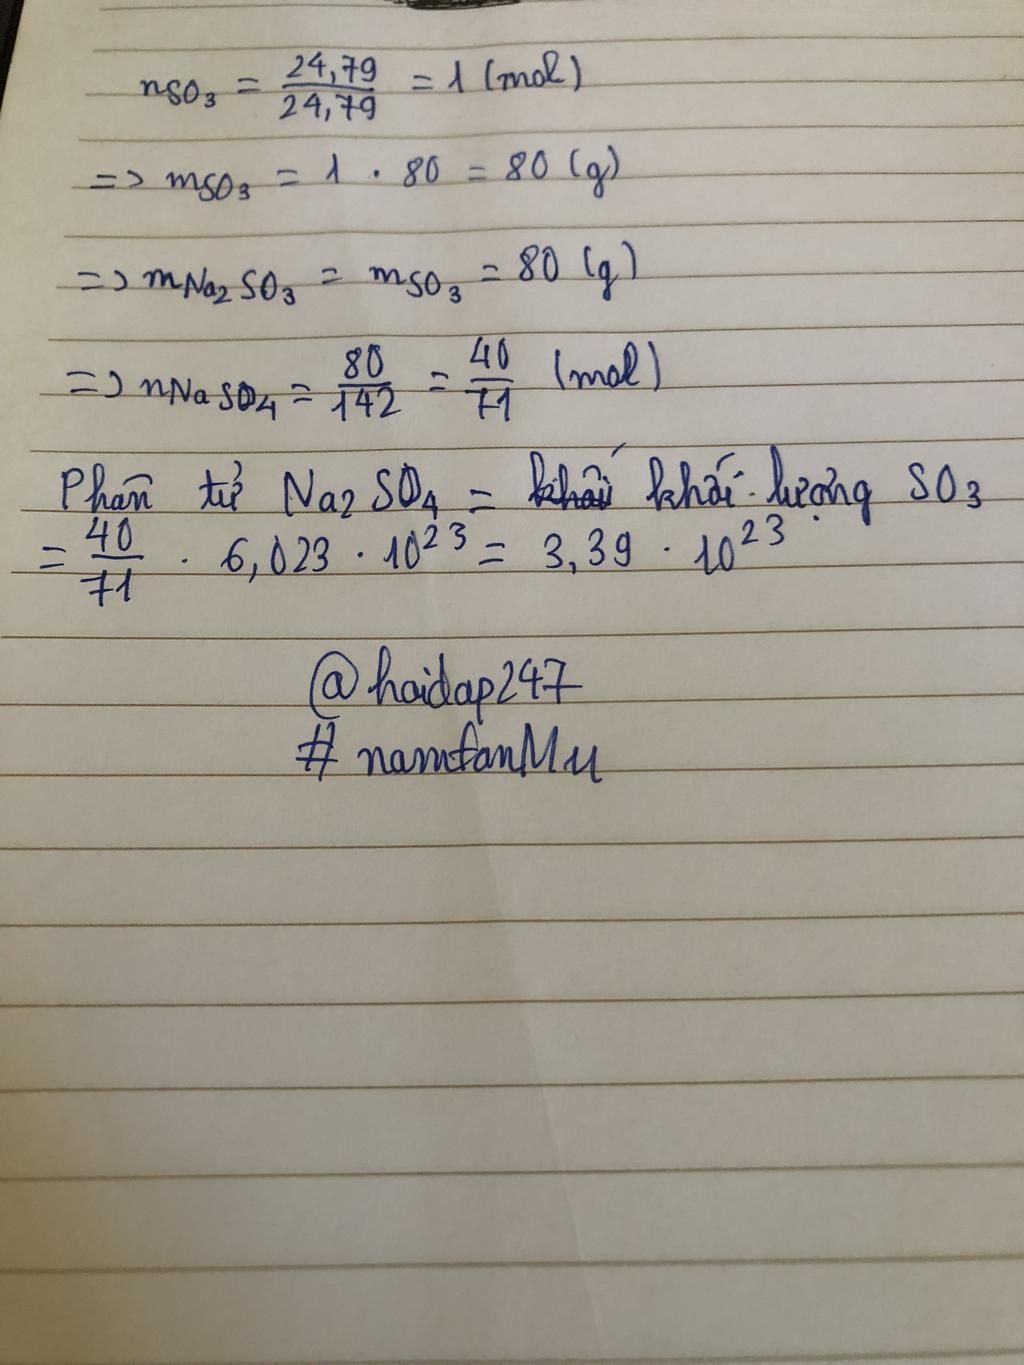 nSO3 = 24,79/24,79 = 1 (mol)
=> mSO3 = 1 . 80 = 80 (g)
=> mNa2SO3 = mSO3 = 80 (g)
=> nNaSO4 = 80/142 = 40/71 (mol)
Phân tử Na2SO4 = khối lượng SO3
= 40/71 . 6,023 . 10^23 = 3,39 . 10^23
@hoidap247
# namfanMu